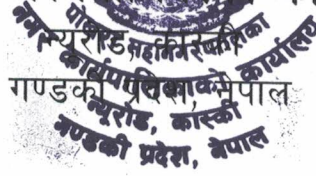 न्यूरोड, कास्की
गण्डकी प्रदेश, नेपाल
महानगरपालिका
नगर कार्यपालिकाको कार्यालय
न्यूरोड, कास्की
गण्डकी प्रदेश, नेपाल